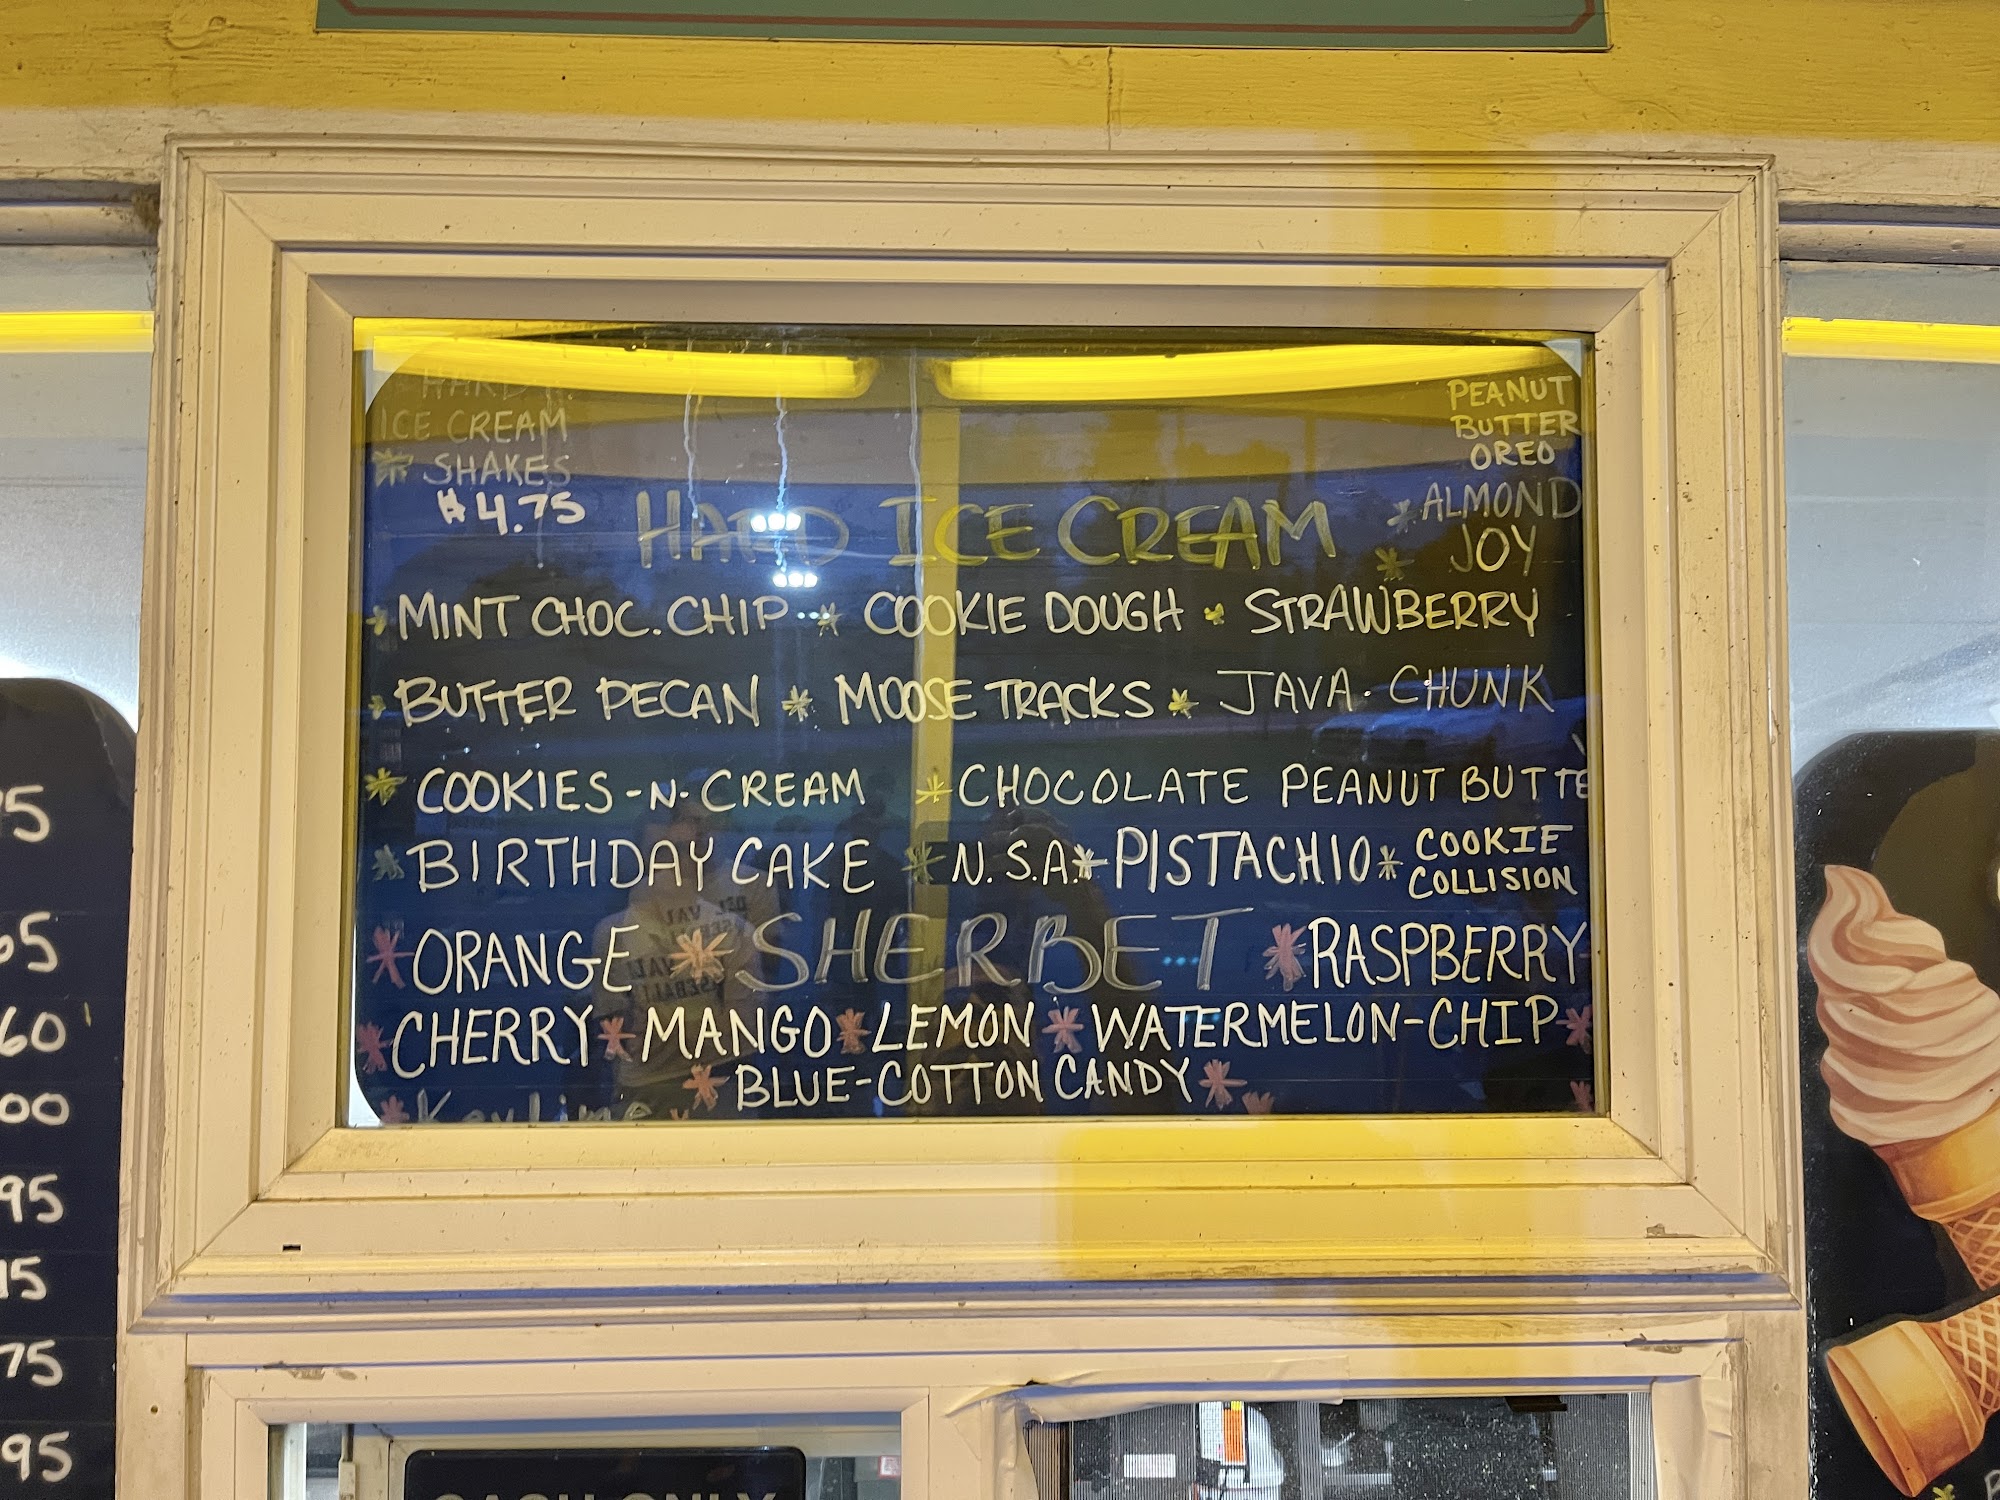 HARD
ICE CREAM
SHAKES
$4.75
PEANUT
BUTTER
OREO
ALMOND
JOY
HARD ICE CREAM
MINT CHOC. CHIP * COOKIE DOUGH * STRAWBERRY
BUTTER PECAN * MOOSE TRACKS * JAVA. CHUNK
COOKIES-N-CREAM * CHOCOLATE PEANUT BUTTE
BIRTHDAY CAKE * N.S.A. * PISTACHIO * COOKIE
COLLISION
ORANGE * SHERBET * RASPBERRY
CHERRY * MANGO * LEMON * WATERMELON-CHIP *
* BLUE-COTTON CANDY *
Key Lime
5
65
60
00
95
15
75
95
CASH ONLY